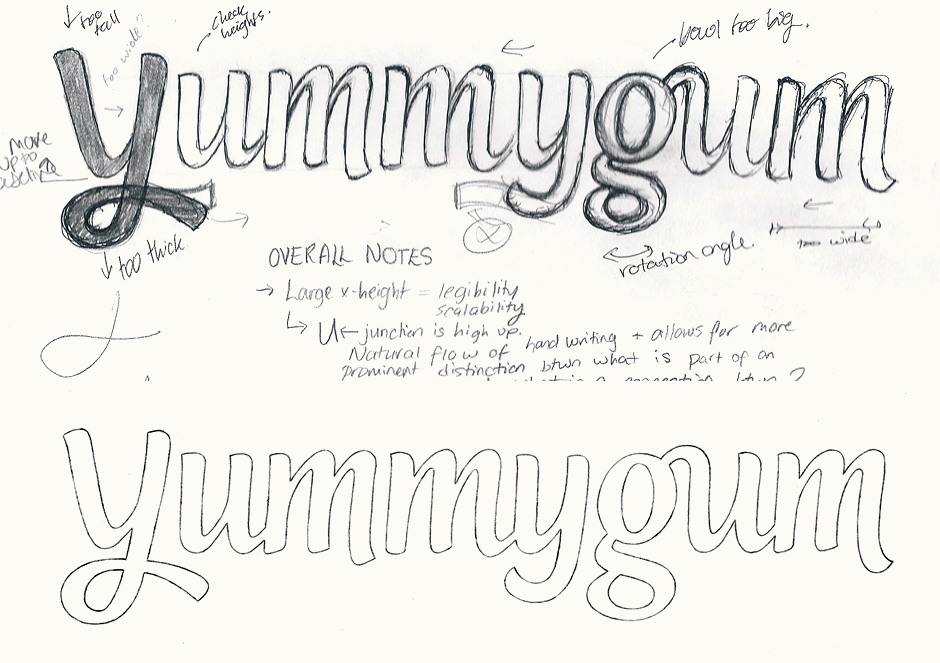 ↓ too tall
too wide?
check heights.
←
bowl too big.
Yummygum
move up to baseline
↓ too thick
rotation angle.
too wide
OVERALL NOTES
→ Large x-height = legibility
scalability
↳ U ← junction is high up.
Natural flow of hand writing + allows for more
prominent distinction btwn what is part of an
connection btwn 2
Yummygum